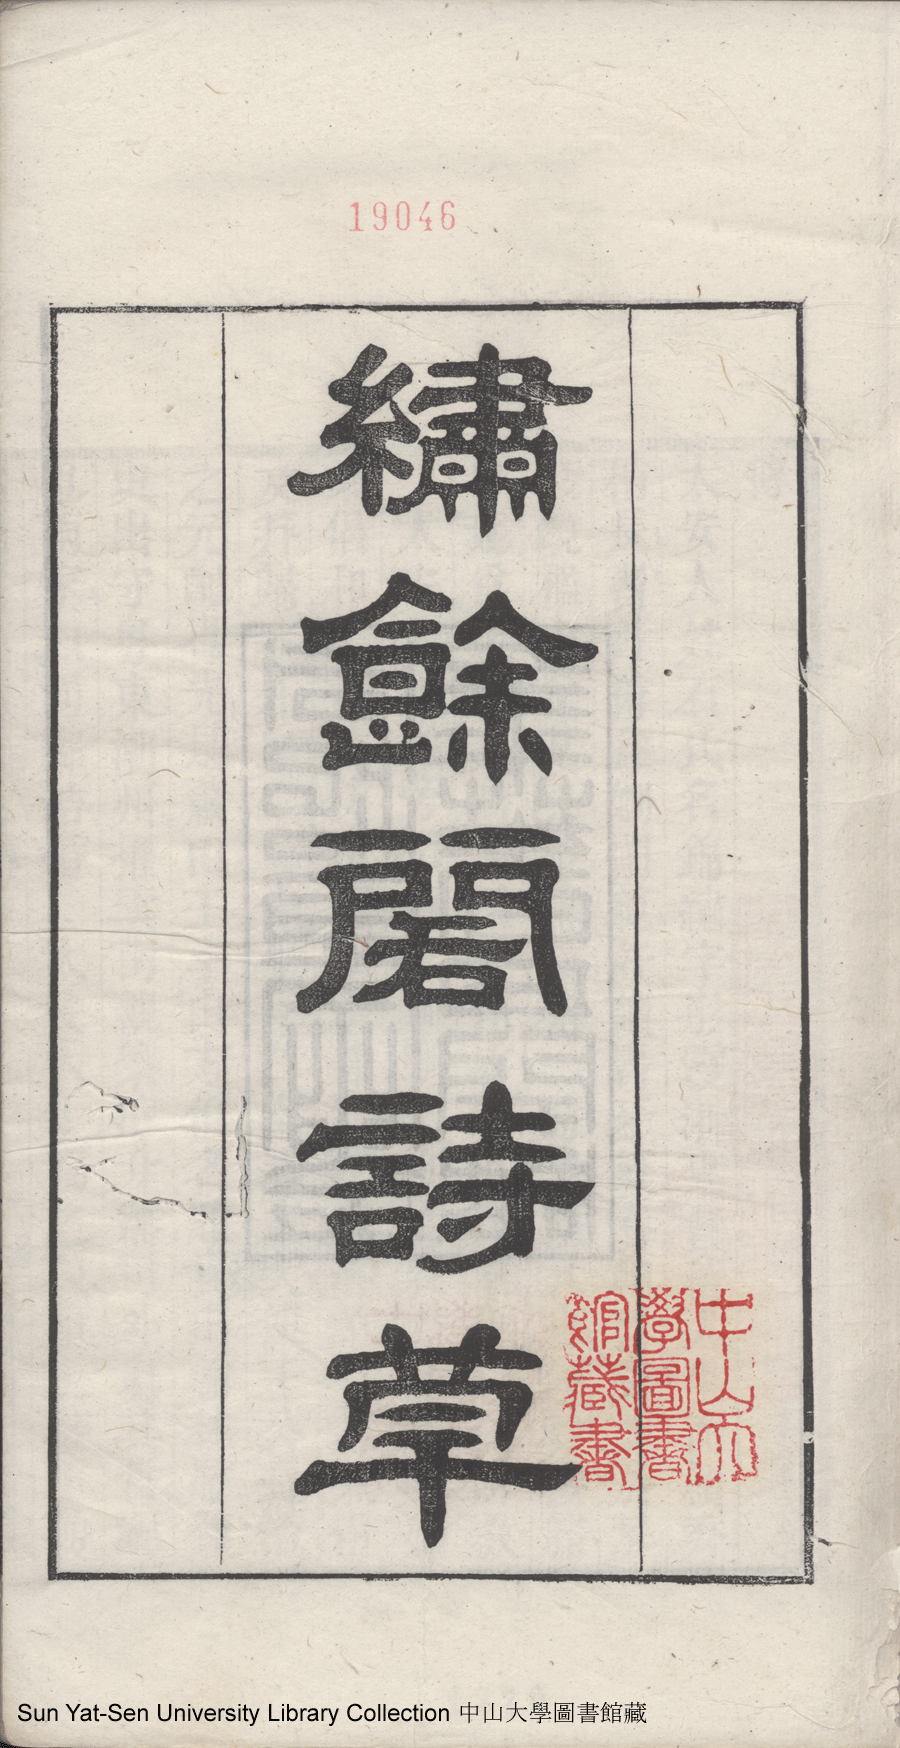 19046
繡餘閣詩草
中山大
學圖書
館藏書
Sun Yat-Sen University Library Collection 中山大學圖書館藏